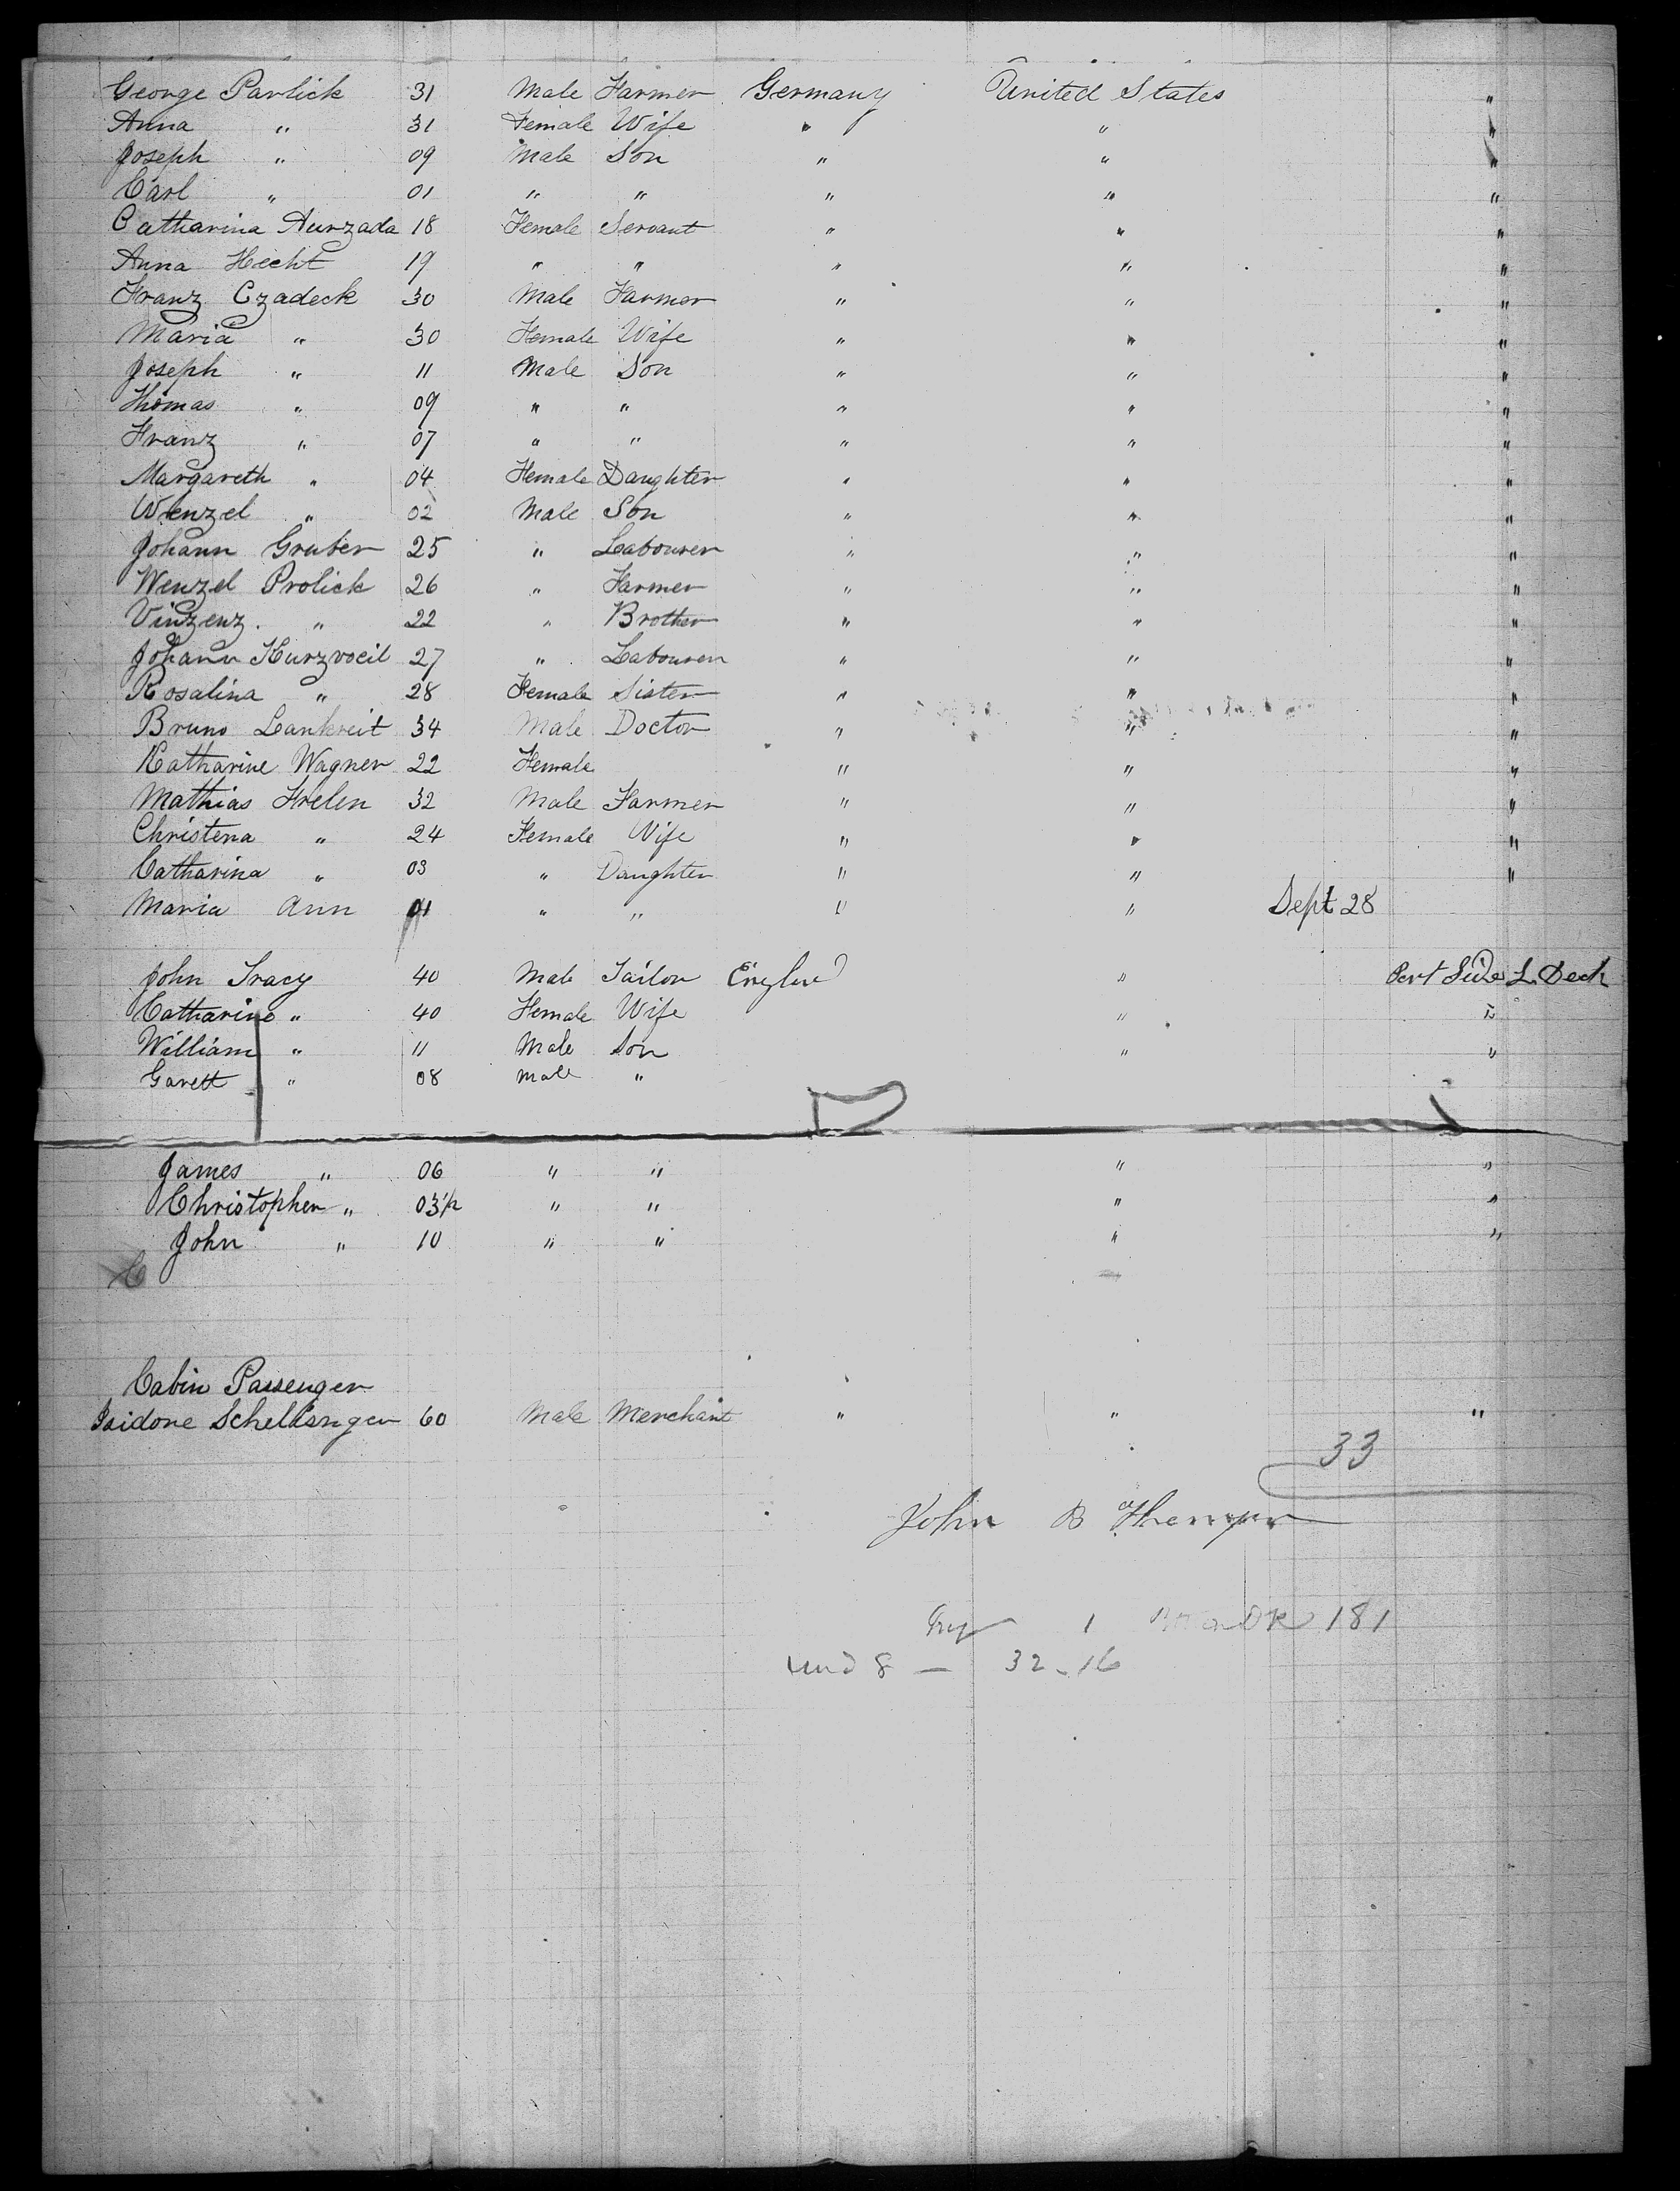 George Pavlick 31 Male Farmer Germany United States "
Anna " 31 Female Wife " " "
Joseph " 09 Male Son " " "
Carl " 01 " " " " "
Catharina Aurzada 18 Female Servant " " "
Anna Hecht 19 " " " " "
Franz Czadeck 30 Male Farmer " " "
Maria " 30 Female Wife " " "
Joseph " 11 Male Son " " "
Thomas " 09 " " " " "
Franz " 07 " " " " "
Margareth " 04 Female Daughter " " "
Wenzel " 02 Male Son " " "
Johann Gruber 25 " Labourer " " "
Wenzel Prolick 26 " Farmer " " "
Vinzenz. " 22 " Brother " " "
Johann Kurzvoeil 27 " Labourer " " "
Rosalina " 28 Female Sister " " "
Bruno Lankreit 34 Male Doctor " " "
Katharine Wagner 22 Female " " "
Mathias Frelen 32 Male Farmer " " "
Christena " 24 Female Wife " " "
Catharina " 03 " Daughter " " "
Maria Ann 01 " " " " Sept 28
John Tracy 40 Male Tailor England " Port Side L. Deck
Catharine " 40 Female Wife " "
William " 11 Male Son " "
Garett " 08 Male "
James " 06 " " " "
Christopher " 03 1/2 " " " "
John " 10 " " " "
C
Cabin Passenger
Isidore Schellsnger 60 Male Merchant " " "
33
John B
1 181
und 8 — 32-16